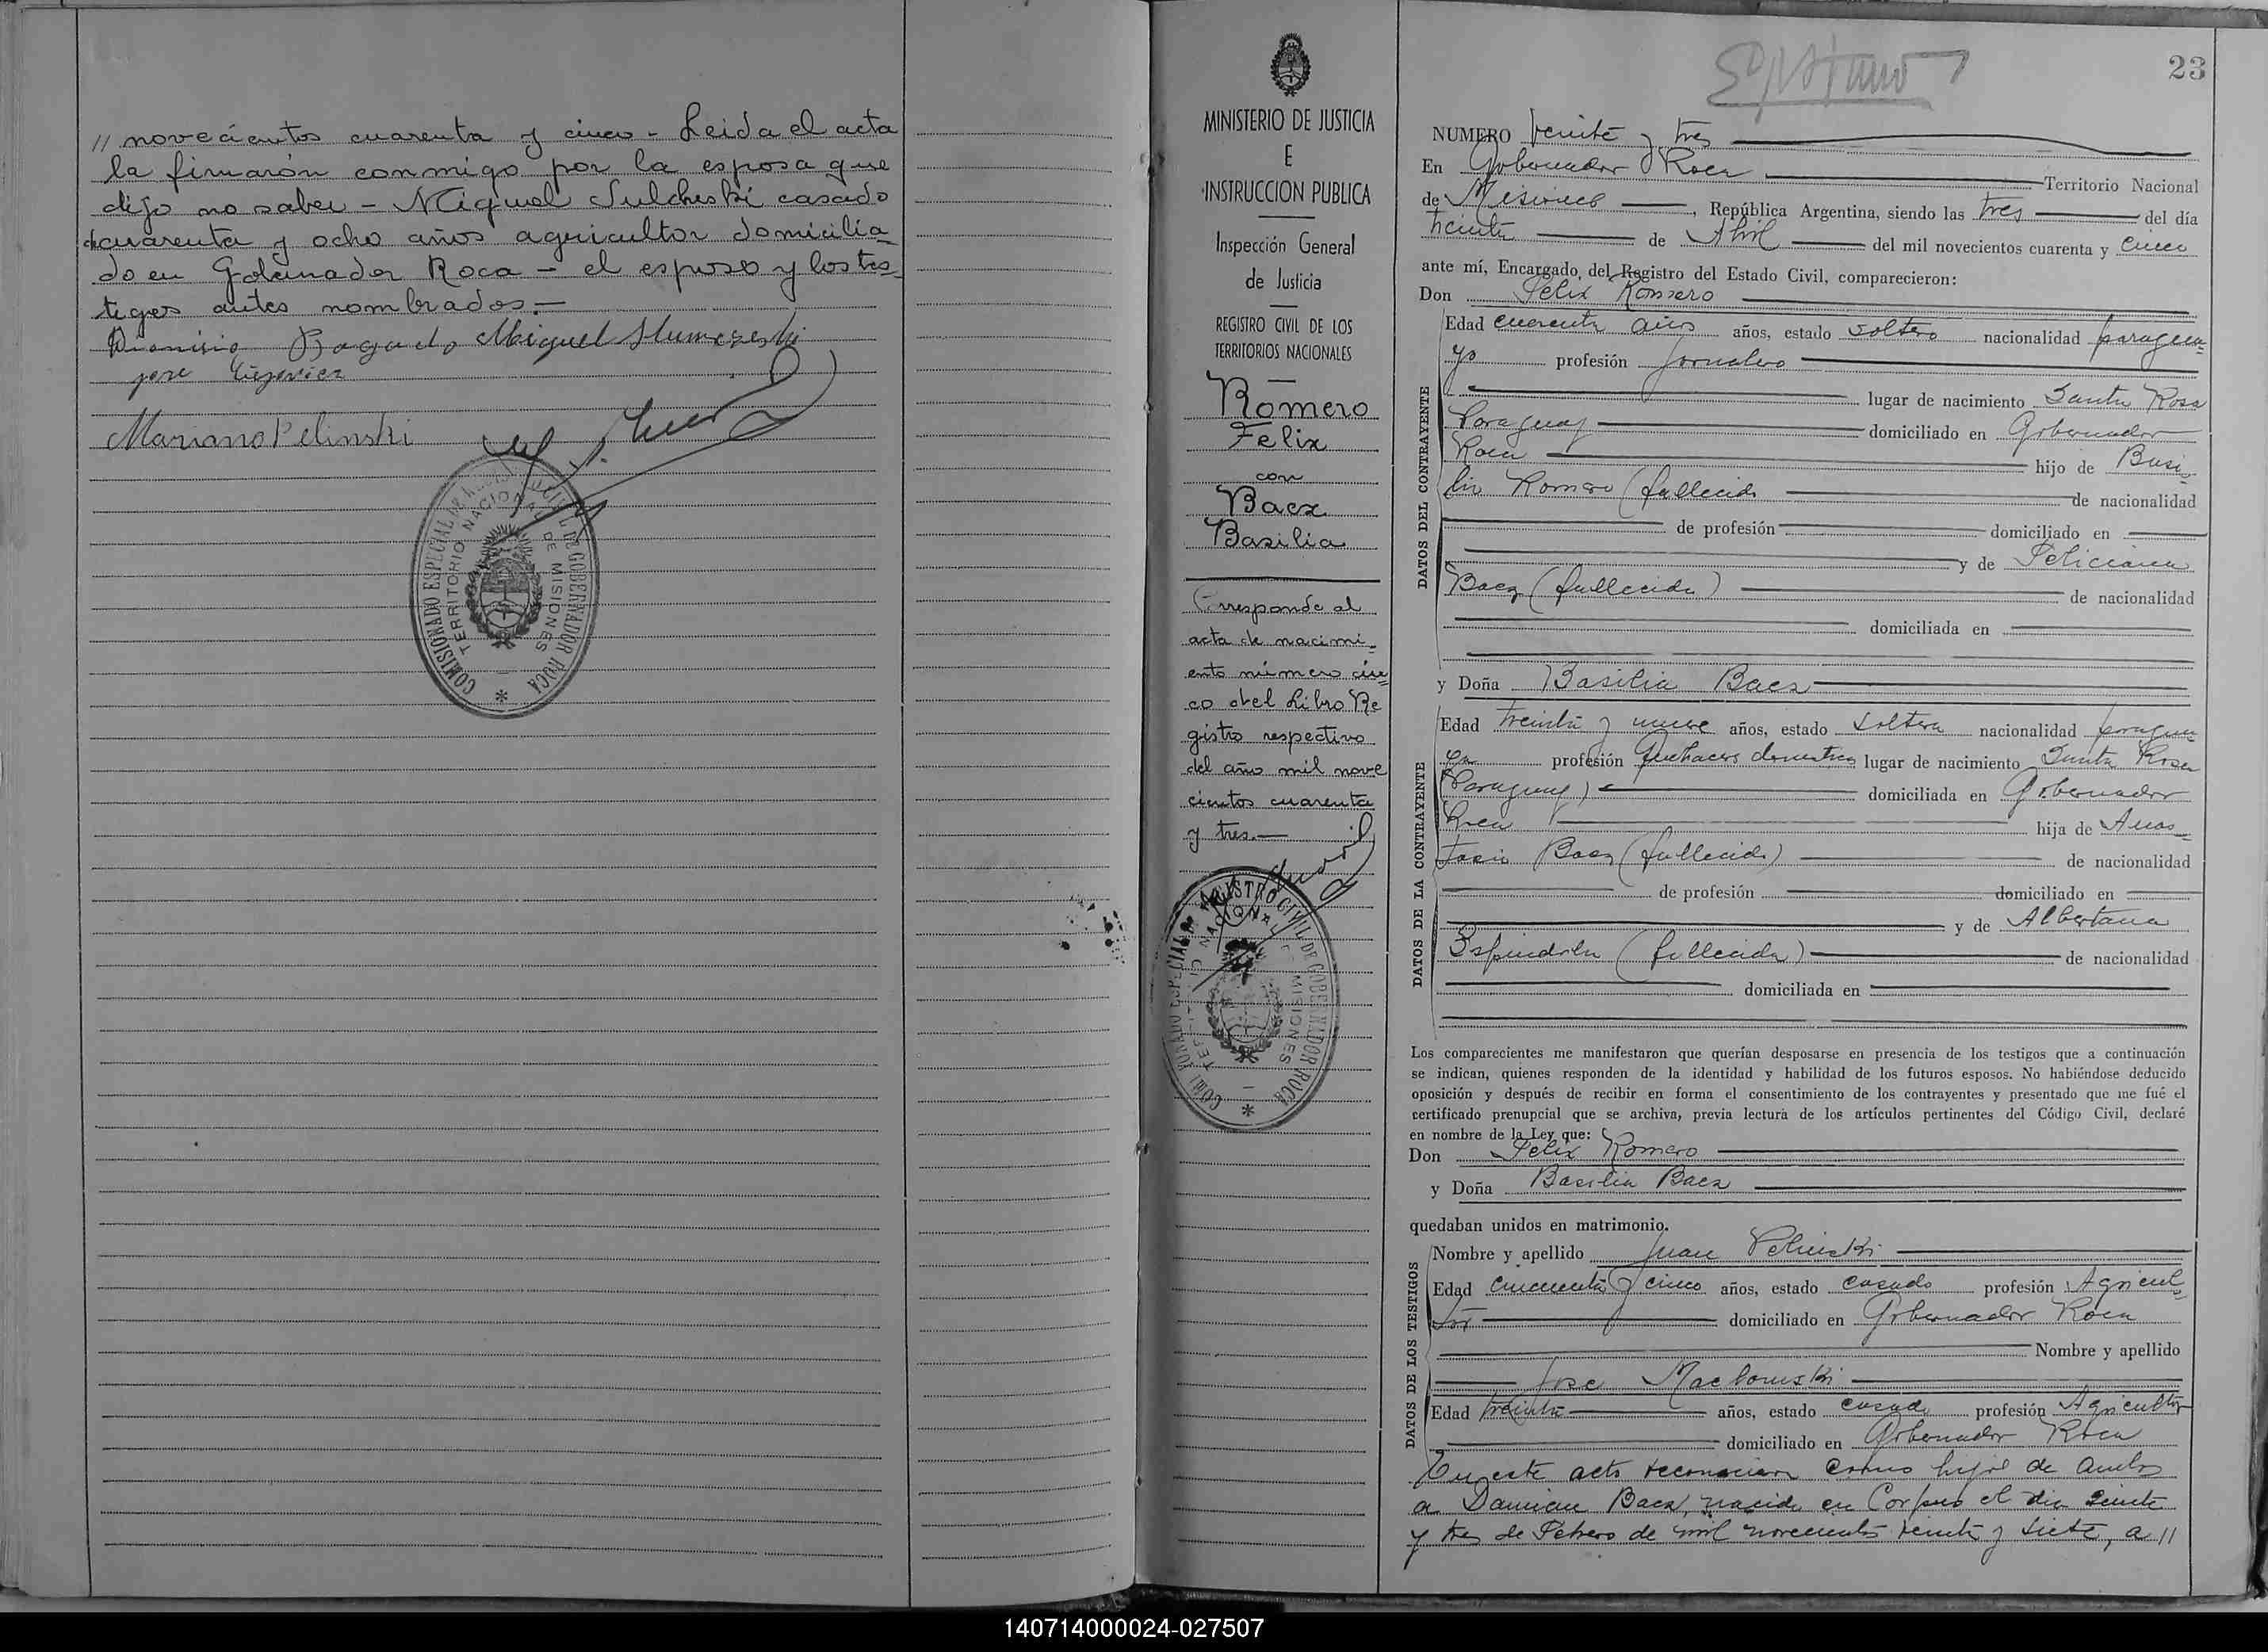 // novecientos cuarenta y cinco - Leida el acta
la firmarón conmigo por la esposa que
dijo no saber - Miguel Sulcheski casado
cuarenta y ocho años agricultor domicilia-
do en Gobernador Roca - el esposo y los tes-
tigos antes nombrados.-
Dionisio Bogado Miguel
jose
Mariano Pelinski
COMISIONADO ESPECIAL DE REGISTRO CIVIL DE GOBERNADOR ROCA
TERRITORIO NACIONAL DE MISIONES
MINISTERIO DE JUSTICIA
E
INSTRUCCION PUBLICA
Inspección General
de Justicia
REGISTRO CIVIL DE LOS
TERRITORIOS NACIONALES
Romero
Felix
con
Baez
Basilia
Corresponde al
acta de nacimi-
ento número cin-
co del Libro Re
gistro respectivo
del año mil nove
cientos cuarenta
y tres.-
REGISTRO CIVIL DE GOBERNADOR ROCA
MISIONES
23
NUMERO veinte y tres
En Gobernador Roca Territorio Nacional
de Misiones, República Argentina, siendo las tres del día
treinta de Abril del mil novecientos cuarenta y cinco
ante mí, Encargado del Registro del Estado Civil, comparecieron:
Don Felix Romero
DATOS DEL CONTRAYENTE
Edad cuarenta años años, estado soltero nacionalidad paragua-
yo profesión Jornalero
lugar de nacimiento Santa Rosa
Paraguay domiciliado en Gobernador
Roca hijo de Basi-
lio Romero (fallecido de nacionalidad
de profesión domiciliado en
y de Feliciana
Baez (fallecida) de nacionalidad
domiciliada en
y Doña Basilia Baez
DATOS DE LA CONTRAYENTE
Edad treinta y nueve años, estado soltera nacionalidad paragua-
ya profesión Quehaceres domesticos lugar de nacimiento Santa Rosa
(Paraguay) domiciliada en Gobernador
Roca hija de Anas-
tacio Baez (fallecido) de nacionalidad
de profesión domiciliado en
y de Albertana
Espindola (fallecida) de nacionalidad
domiciliada en
Los comparecientes me manifestaron que querían desposarse en presencia de los testigos que a continuación
se indican, quienes responden de la identidad y habilidad de los futuros esposos. No habiéndose deducido
oposición y después de recibir en forma el consentimiento de los contrayentes y presentado que me fué el
certificado prenupcial que se archiva, previa lectura de los artículos pertinentes del Código Civil, declaré
en nombre de la Ley que:
Don Felix Romero
y Doña Basilia Baez
quedaban unidos en matrimonio.
DATOS DE LOS TESTIGOS
Nombre y apellido Juan Pelinski
Edad cincuenta y cinco años, estado casado profesión Agricul-
tor domiciliado en Gobernador Roca
Nombre y apellido
Jose Machowski
Edad treinta años, estado casado profesión Agricultor
domiciliado en Gobernador Roca
En este acto reconocieron como hijos de ambos
a Damian Baez, nacido en Corpus el dia veinte
y tres de Febrero de mil novecientos veinte y siete, a //
140714000024-027507